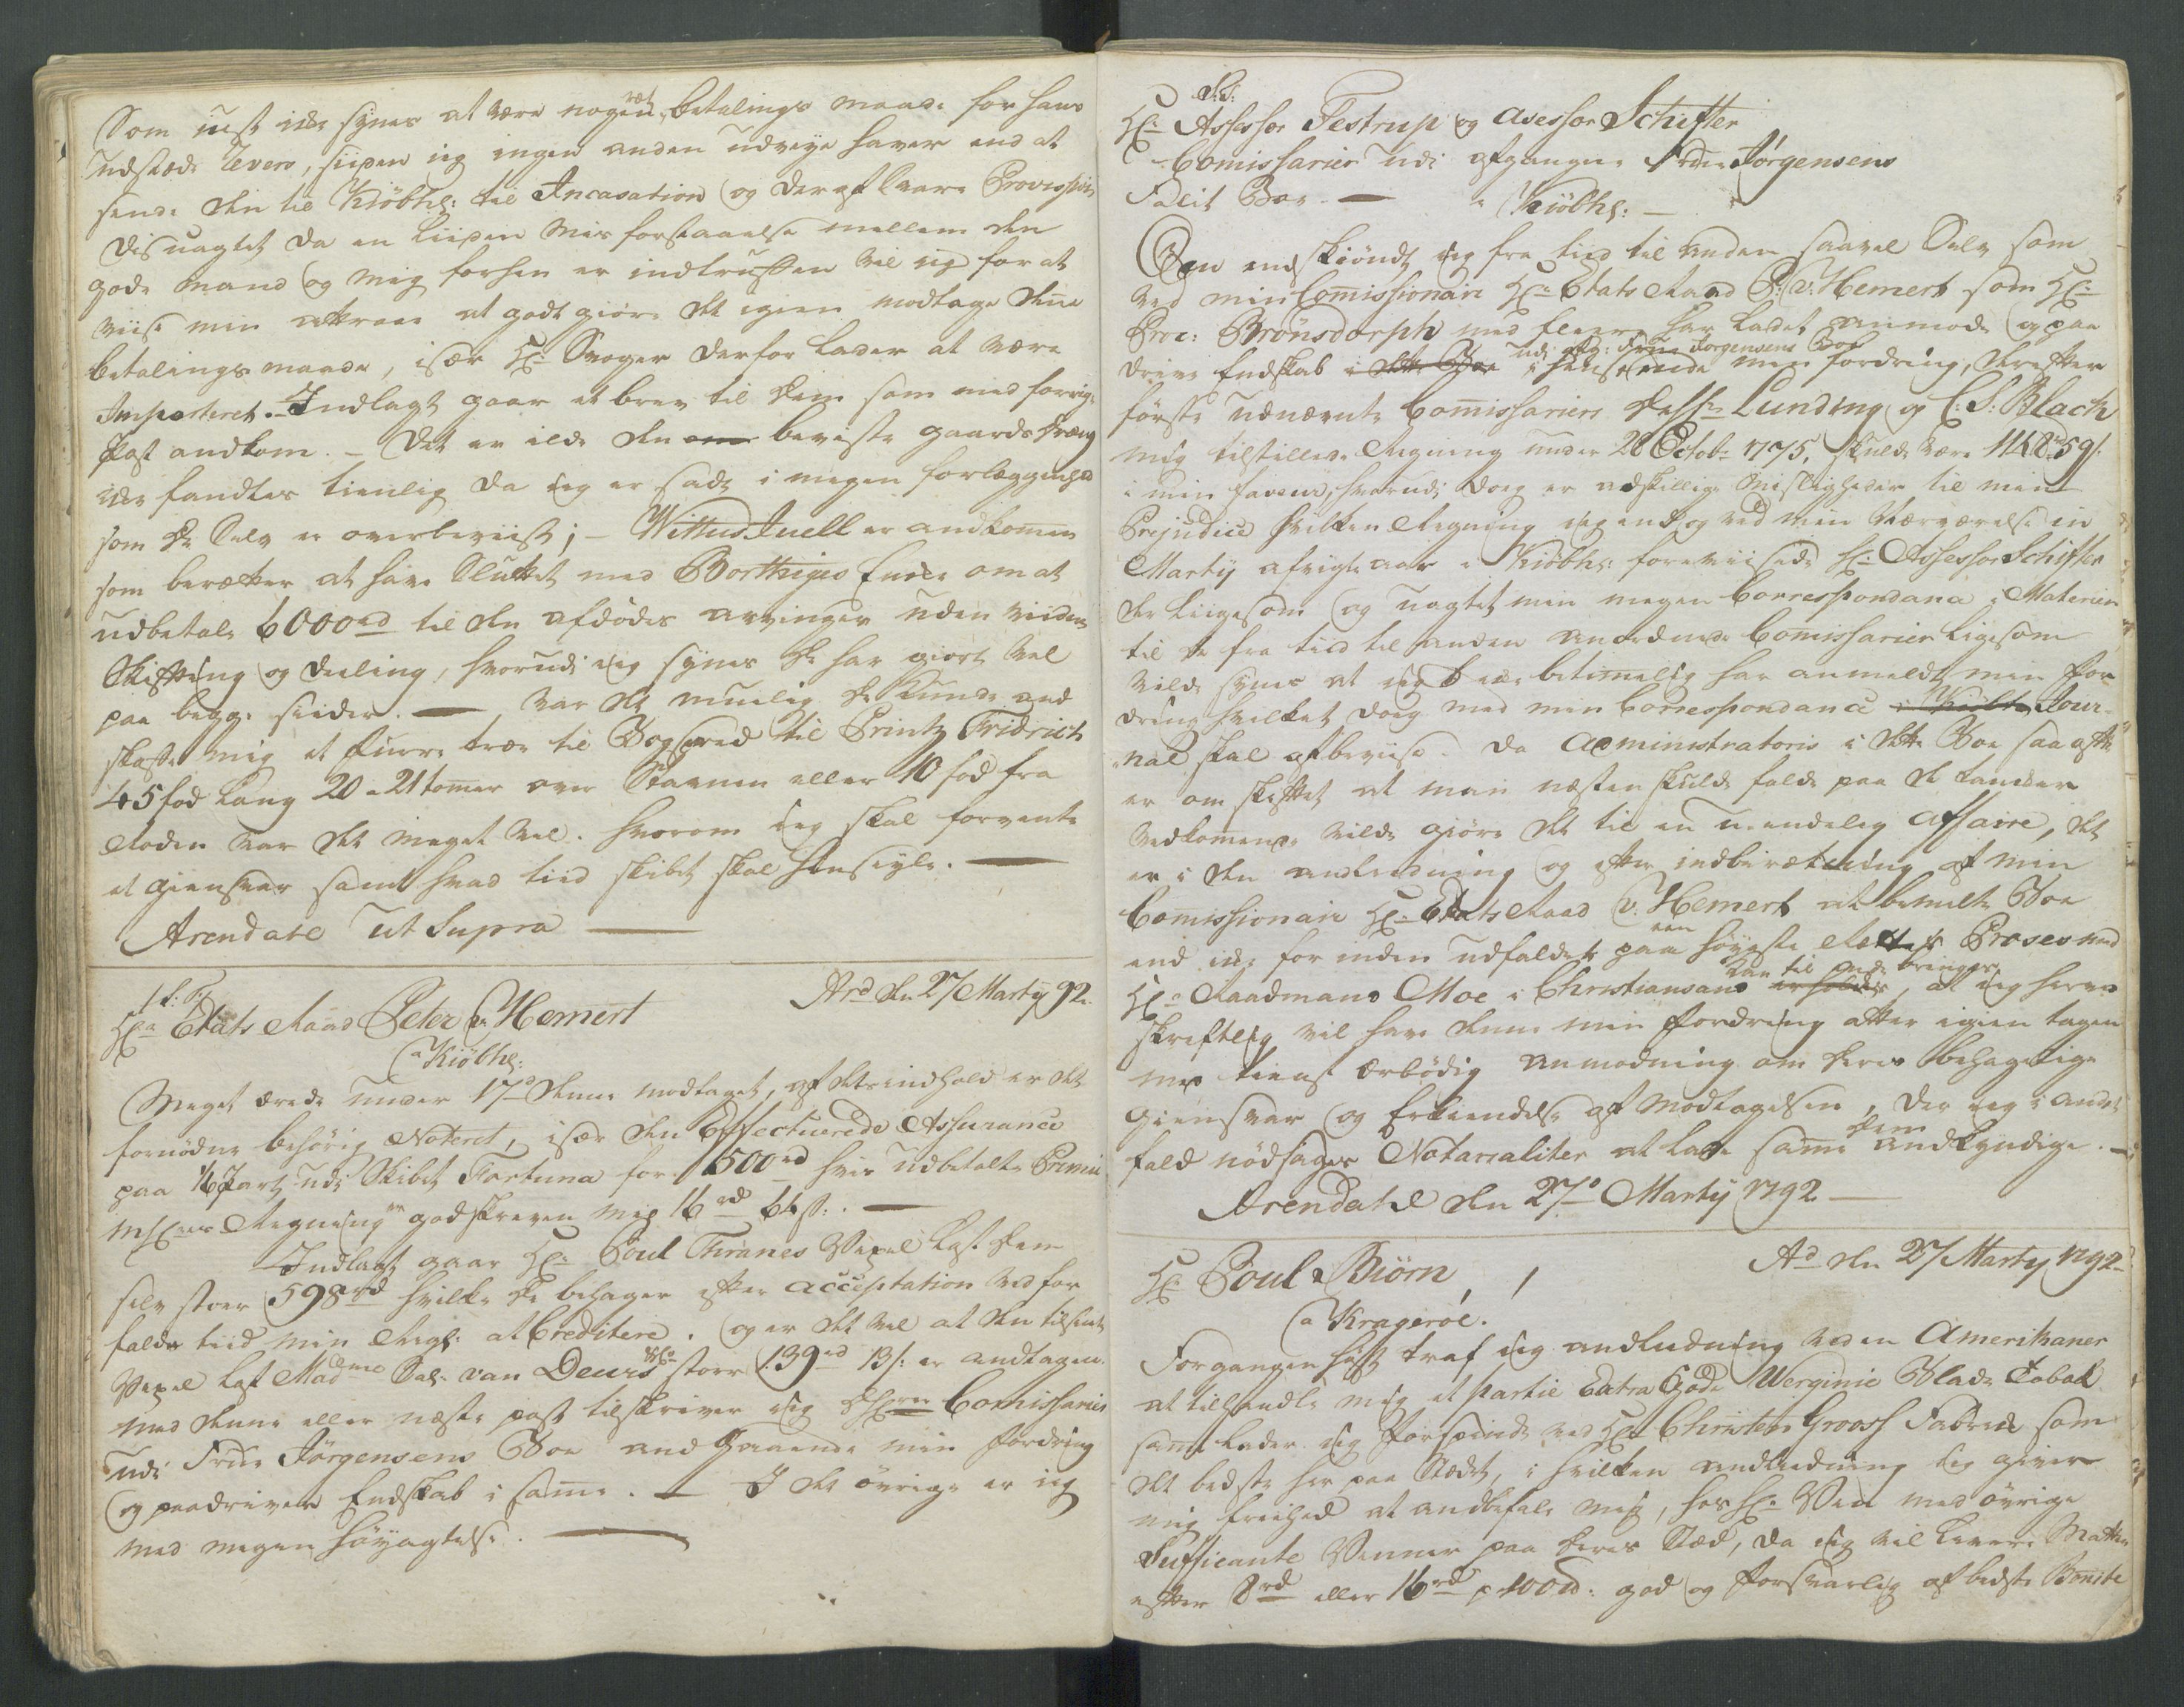 Som iust icke synes at være nogen ræt betalings maade for hans
udstæde Revers, siden ieg ingen anden udveye haver end at
sende den til Kiöbhs: til Incasation og deraf svare Provision
disuagtet da en liiden Misforstaaelse mellem den
gode mand og mig forhen er indtruffen vil ieg for at
viise min attraae at godt giøre det igien modtage denne
betalings maade, især Hr: Svoger derfor lader at være
Importeret. Indlagt gaar et brev til dem som med forrige
Post andkom. – Det er ilde den beviste gaards dreng
icke fandtes tienlig da ieg er sadt i megen forlægenhed
som de Selv er overbeviist; – Wittus Juell er andkommen
som beretter at have Sluttet med Borthiges Enke om at
udbetale 6000 rd til den afdödes arvinger uden viidere
Skiftning og deeling, hvorudi ieg synes de har giort vel
paa begge siider. — Var det muelig de kunde and
skaffe mig et furre træe til Bogspred til Printz Fridrich
45 fod lang 20 a 21 tommer over Stavnen eller 10 fod fra
Roden var det meget vel. hvorom ieg skal forvente
et giensvar samt hvad tiid skibet skal henseyle. —
Arendahl Ut Supra —
Ard den 27 Martij 92.
S: T:
Hr Etats Raad Peter v: Hemert
a Kiöbhs:
Meget ærede under 17d denne modtaget, af dets indhold er det
fornødne behörig Noteret, især den Effectuerede Assurance
paa 1/16 Part udi Skibet Fortuna for 1500 rd hvis udbetalte Premie
godskreven mig 16 rd 64 s:. —
Indlagt gaar Hr: Poul Thranes Vexel last dem
selv stoer 598 rd hvilke de behager efter acceptation ved for
falds tiid min Regs: at Creditere. og er det vel at den tilsendte
Vexel last Madme Sal: van Deurs & Co stoer 139 rd 13 s: er andtagen.
med denne eller næste post tilskriver ieg Comissarier
udi Frue Jörgensens Boe and gaaende min fordring
og paadriver Endskab i samme. — I det övrige er ieg
med megen höyagtelse. —
S: T:
Hr: Assessor Testrup og Asessor Schifter
Comissarier udi afgangne Frue Jörgensens
Falit Boe. — a Kiöbhs: —
Den endskiöndt ieg fra tiid til anden saavel Selv som
ved min Comissionair Hr: Etats Raad P: v: Hemert som Hr:
Proc: Brönsdorph med fleere har ladet anmode og paa
drive Endskab i dette Boe udi afg: Frue Jörgensens Boe i henseende min fordring, derefter
förste udnævnte Comissarier Lunding og C: S: Black
mig tilstillede Regning under 28 Octob: 1775, skulde være 1148 rd 59 s:
i min faveur, hvorudi dog er adskillige Misligheder til min
Prejudice hvilken Regning ieg endog ved min Nærværelse in
Martij afvigte aar i Kiöbhs: foreviisede Hr: Assessor Schifter
der liigesom og uagtet min megen Correspondance i Materien
til de fra tiid til anden anordnede Comissarier ligesom
vilde synes at ieg ei betimelig har anmeldt min for
dring hvilket dog med min Correspondance Jour-
nal skal afbevise. Da Administratoris i dette Boe saa ofte
er om skiftet at man næsten skulde falde paa de tancker
vedkommende vilde giøre det til en uendelig affaire, det
er i den andledning og efter indberætning af min
Comissionair Hr: Etats Raad v: Hemert at bemelte Boe
end icke for inden udfaldet paa een höyeste Rættes Proses med
Hr: Raadmand Moe i Christiansand erholdes kan til ende bringes, at ieg herved
skriftlig vil have denne min fordring atter igien tagen
med tienst ærbödig anmodning om deres behagelige
giensvar og Erkiendelse af Modtagelsen, der ieg i andet
fald nödsages Notarialiter at lade samme dem andkyndige. —
Arendahl den 27d Martij 1792 —
Ad den 27 Martij 1792
Hr: Poul Biörn
a Krageröe.
Forgangen höst traf ieg andledning ved en Amerikaner
at tilhandle mig et partie Extra Gode Werginie Blade Tobak
samt lader ieg forspinde ved Hr: Christen Groosh Fabrik som
det bedste her paa Stædet, i hvilken andledning ieg giver
mig friihed at andbefale mig, hos Hr: Ven med övrige
Sufficante Venner paa deres Stæd, da ieg vil levere
efter 8 rd eller 16 rd p 100 ℔: god og forsvarlig af bedste Bonite